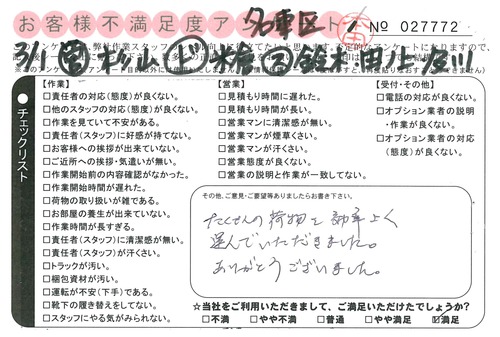 お客様不満足度アンケート
名東区
No 027772
3/1
杉山
鈴木
チェックリスト
【作業】
□責任者の対応(態度)が良くない。
□他のスタッフの対応(態度)が良くない。
□作業を見ていて不安がある。
□責任者(スタッフ)に好感が持てない。
□お客様への挨拶が出来ていない。
□ご近所への挨拶・気遣いが無い。
□作業開始前の内容確認がなかった。
□作業開始時間が遅れた。
□荷物の取り扱いが雑である。
□お部屋の養生が出来ていない。
□作業時間が長すぎる。
□責任者(スタッフ)に清潔感が無い。
□責任者(スタッフ)が汗くさい。
□トラックが汚い。
□梱包資材が汚い。
□運転が不安(下手)である。
□靴下の履き替えをしてない。
□スタッフにやる気がみられない。
【営業】
□見積もり時間に遅れた。
□見積もり時間が長い。
□営業マンに清潔感が無い。
□営業マンが煙草くさい。
□営業マンが汗くさい。
□営業態度が良くない。
□営業の説明と作業が一致してない。
【受付・その他】
□電話の対応が良くない。
□オプション業者の説明
・作業が良くない。
□オプション業者の対応
(態度)が良くない。
その他、ご意見・ご要望等ありましたらお書き下さい。
たくさんの荷物を効率よく
運んでいただきました。
ありがとうございました。
☆当社をご利用いただきまして、ご満足いただけたでしょうか?
□不満 □やや不満 □普通 □やや満足 ☑満足